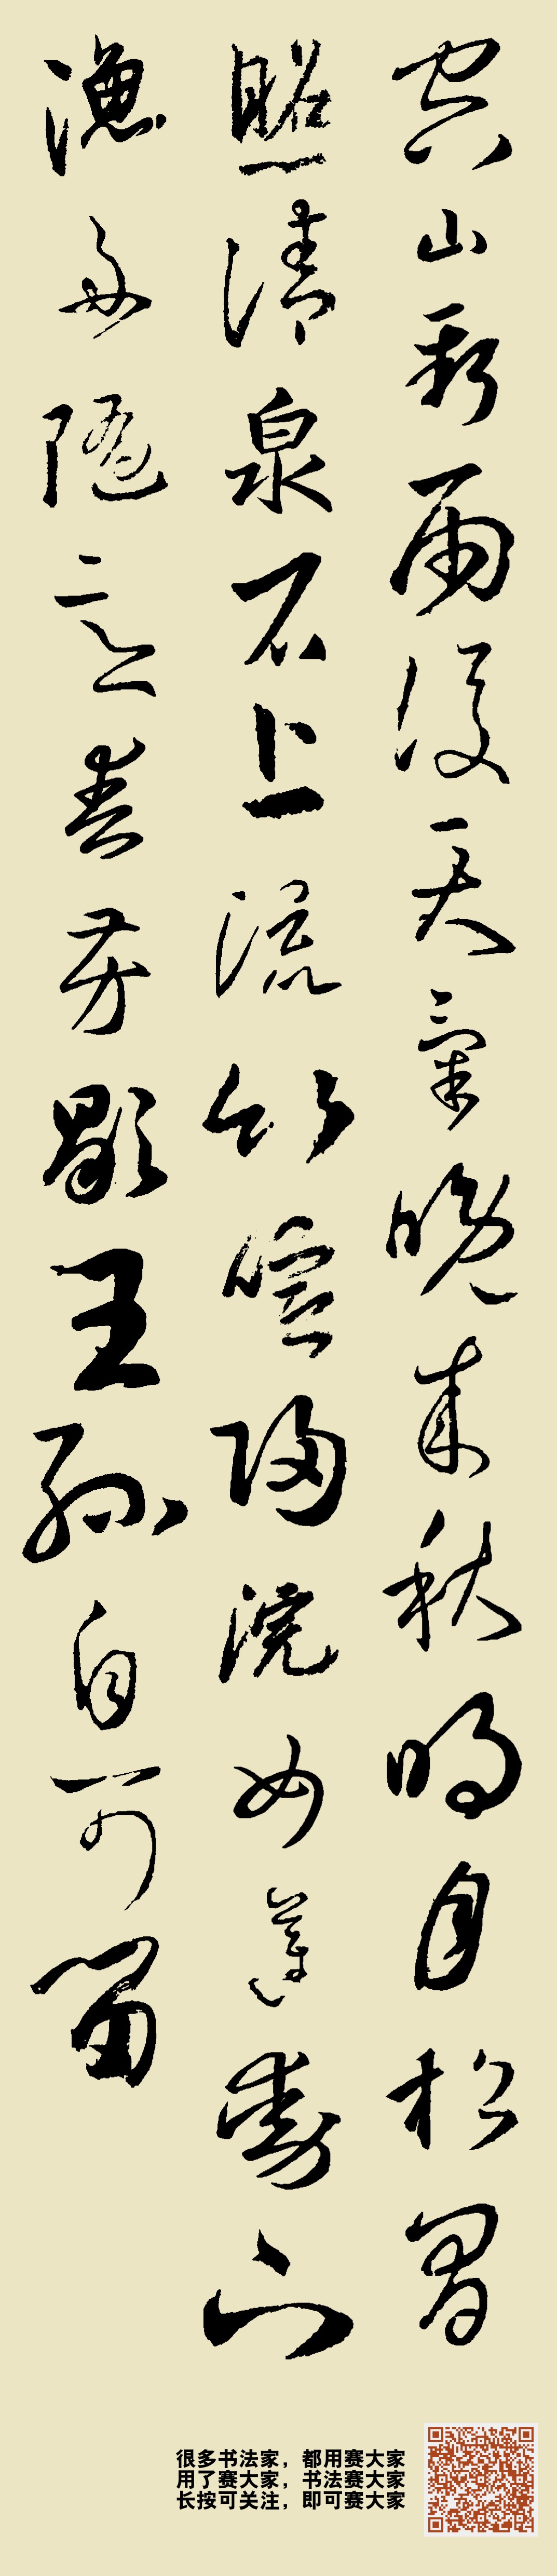 空山新雨後天氣晚來秋明月松間
照清泉石上流竹喧歸浣女蓮動下
漁舟隨意春芳歇王孫自可留
很多书法家，都用赛大家
用了赛大家，书法赛大家
长按可关注，即可赛大家